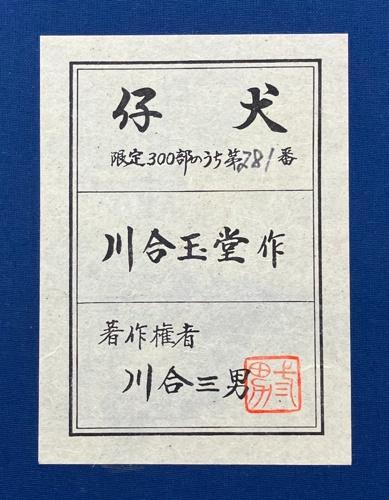 仔犬
限定300部のうち第281番
川合玉堂 作
著作権者
川合三男